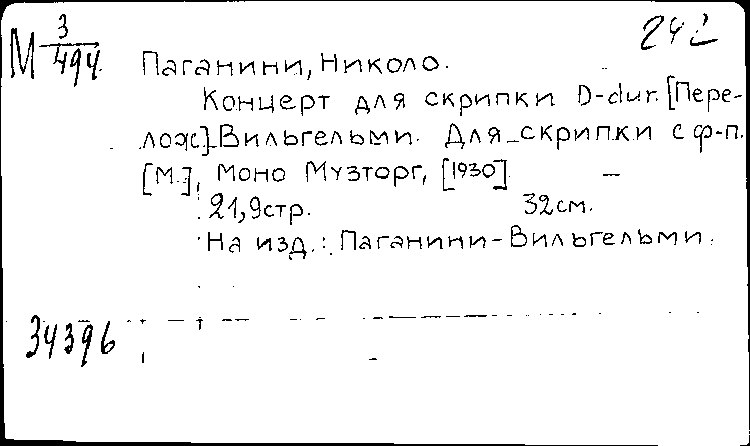 М 3/494
242
Паганини, Николо.
Концерт для скрипки D-dur. [Пере-
лож]. Вильгельми. Для скрипки с ф-п.
[М.], Моно Музторг, [1930]
21, 9 стр. 32 см.
На изд.: Паганини-Вильгельми.
34396